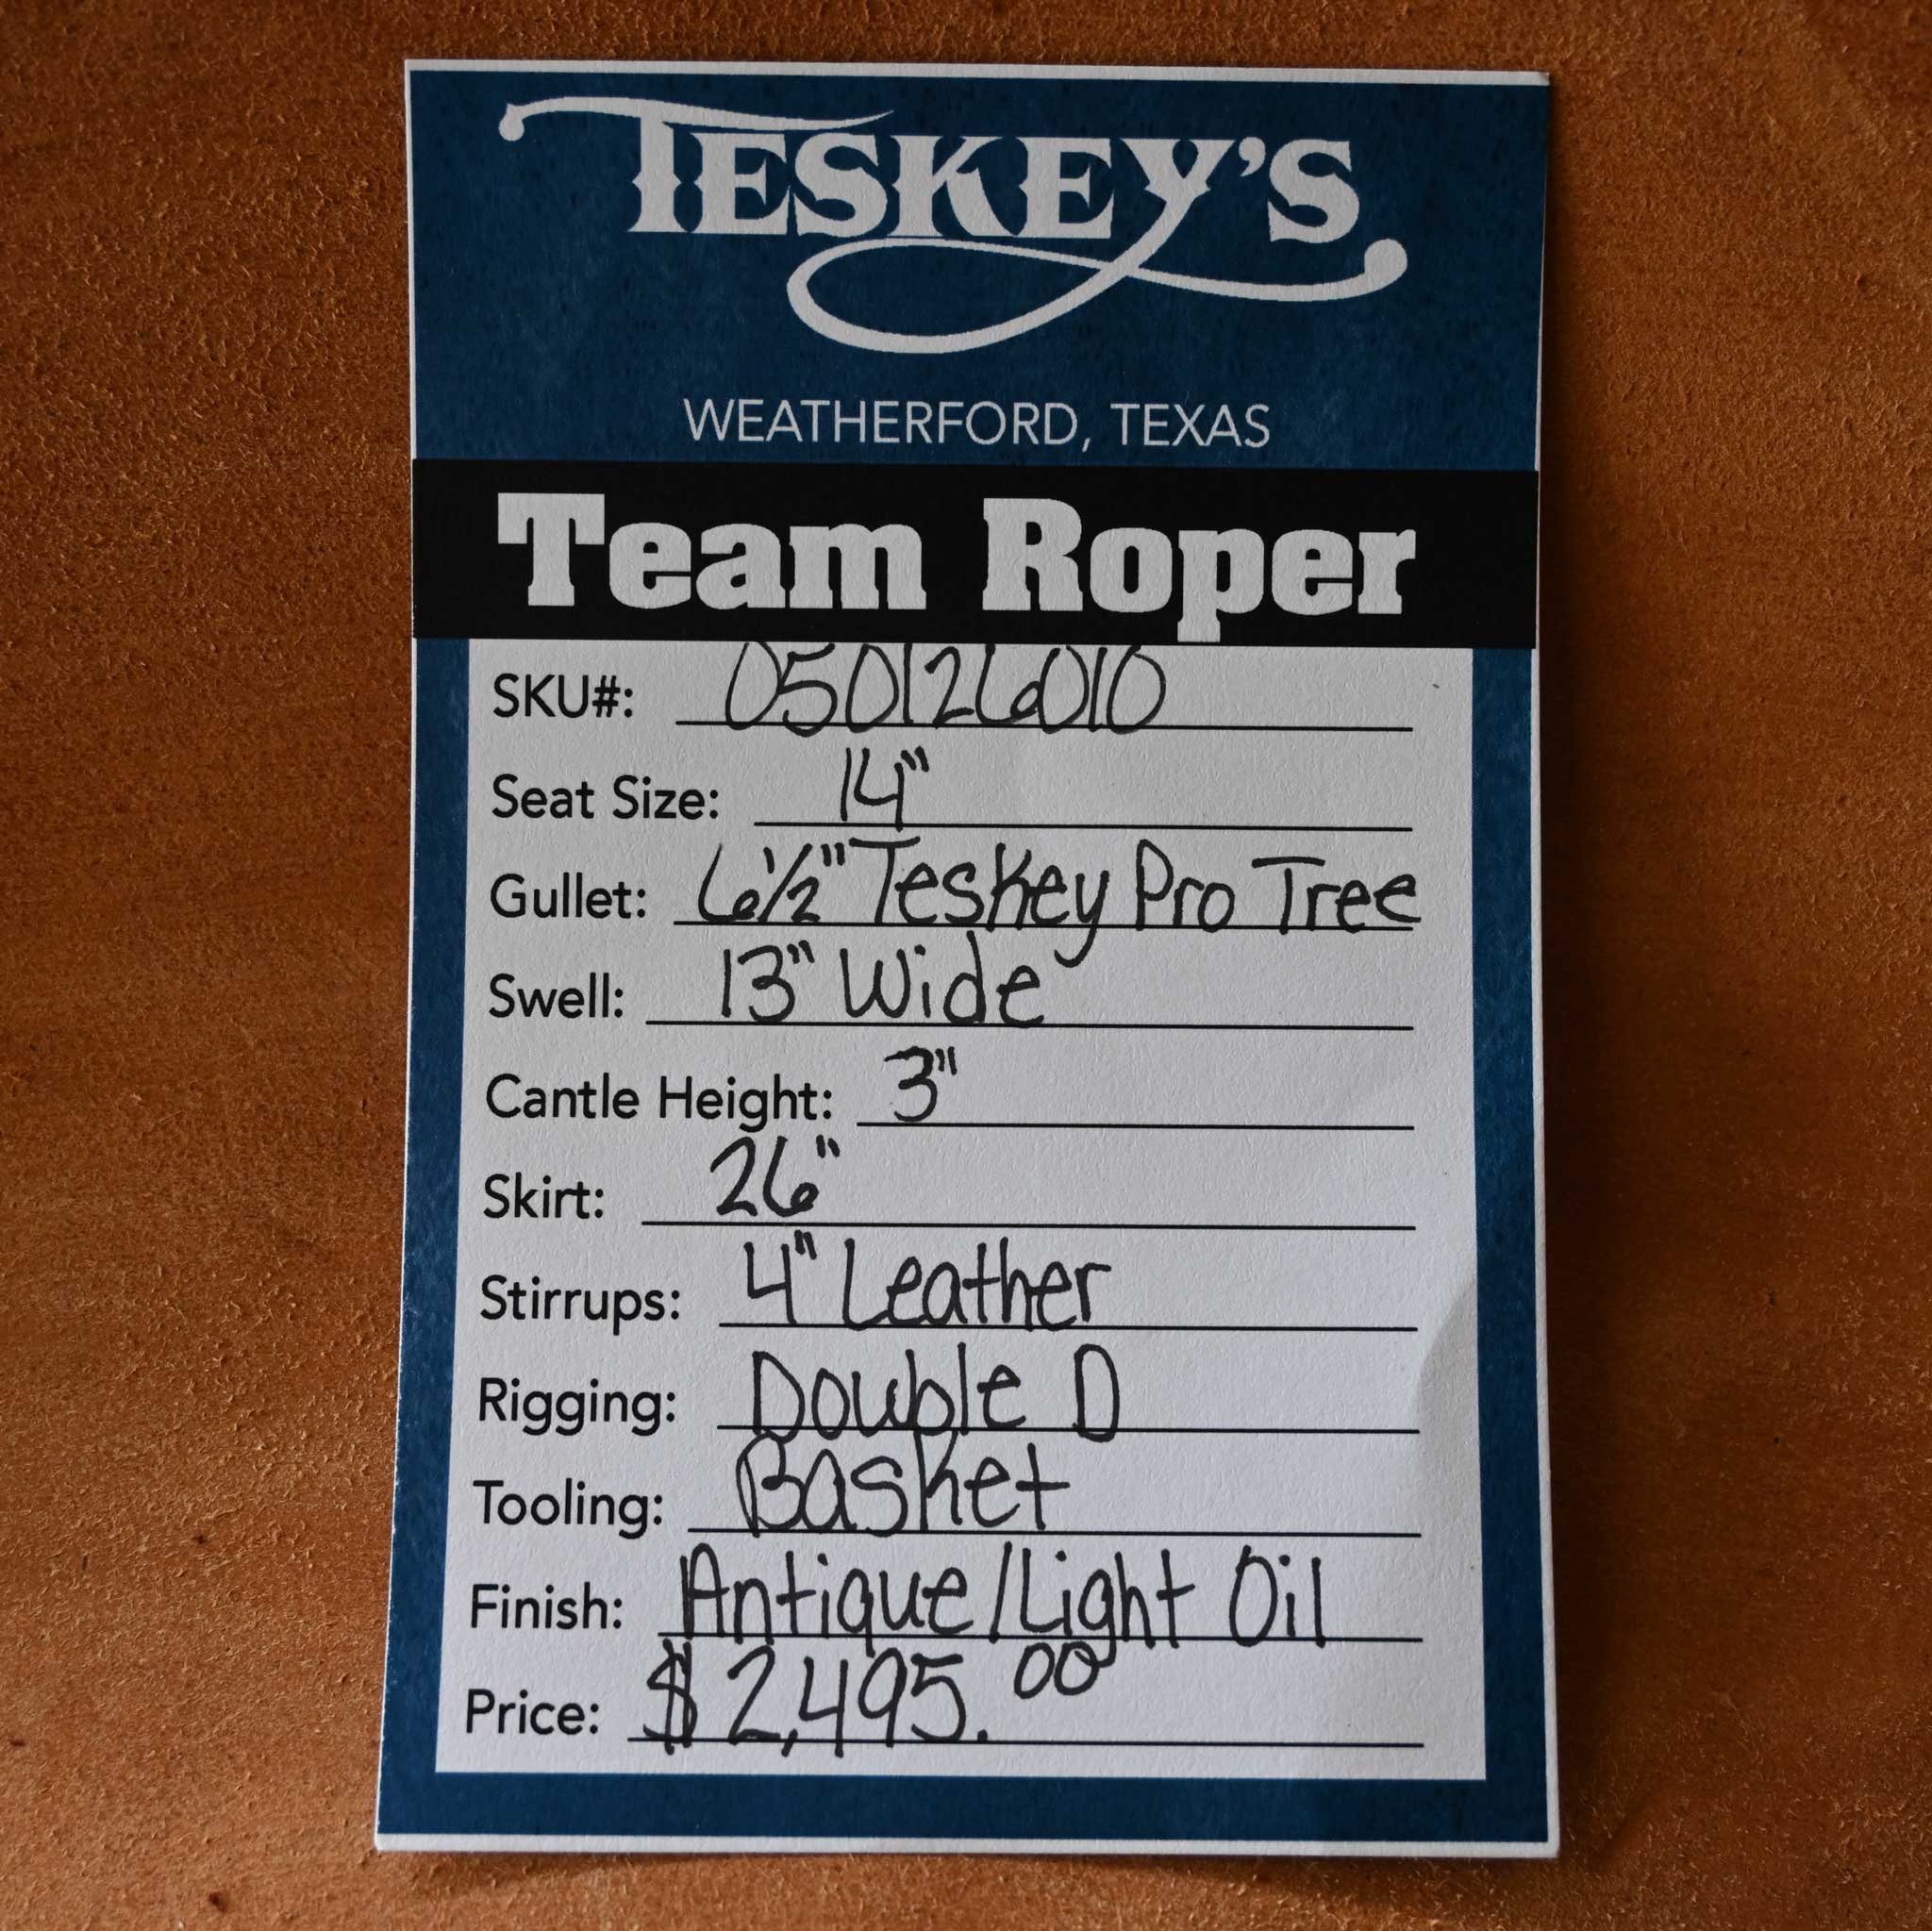 TESKEY'S
WEATHERFORD, TEXAS
Team Roper
SKU#: 050126010
Seat Size: 14"
Gullet: 6½" Teskey Pro Tree
Swell: 13" Wide
Cantle Height: 3"
Skirt: 26"
Stirrups: 4" Leather
Rigging: Double D
Tooling: Basket
Finish: Antique/Light Oil
Price: $2,495.00